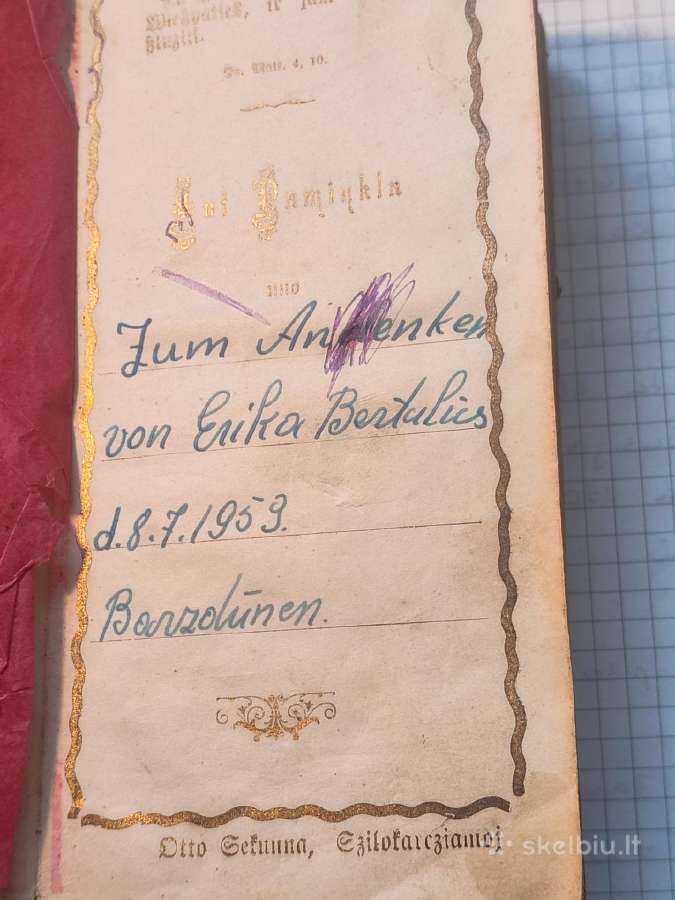 Wieszpaties, ir jam
szluziti.
Sw. Matt. 4, 10.
Ant Pamigkla
nuo
Zum Andenken
von Erika Bertulies
d. 8. 7. 1959.
Barzdūnen.
Otto Sekunna, Szilokarcziamoj
skelbiu.lt